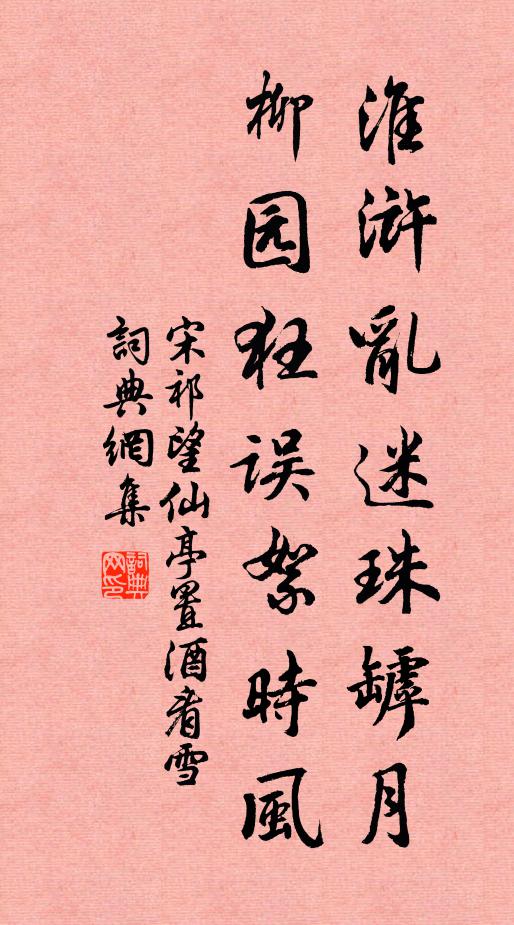 淮浒亂迷珠罅月
柳园狂误絮時風
宋祁望仙亭置酒看雪
詞典網集
詞典網印